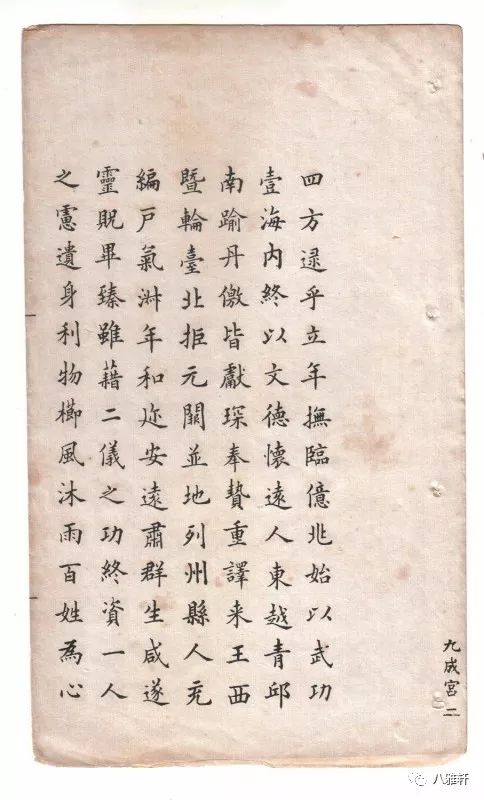 四方逮乎立年撫臨億兆始以武功
壹海内終以文德懷遠人東越青邱
南踰丹儌皆獻琛奉贄重譯来王西
暨輪臺北拒元闕並地列州縣人充
編戸氣淑年和迩安遠肅群生咸遂
靈貺畢臻雖藉二儀之功終資一人
之慮遺身利物櫛風沐雨百姓為心
九成宮二
八雅轩